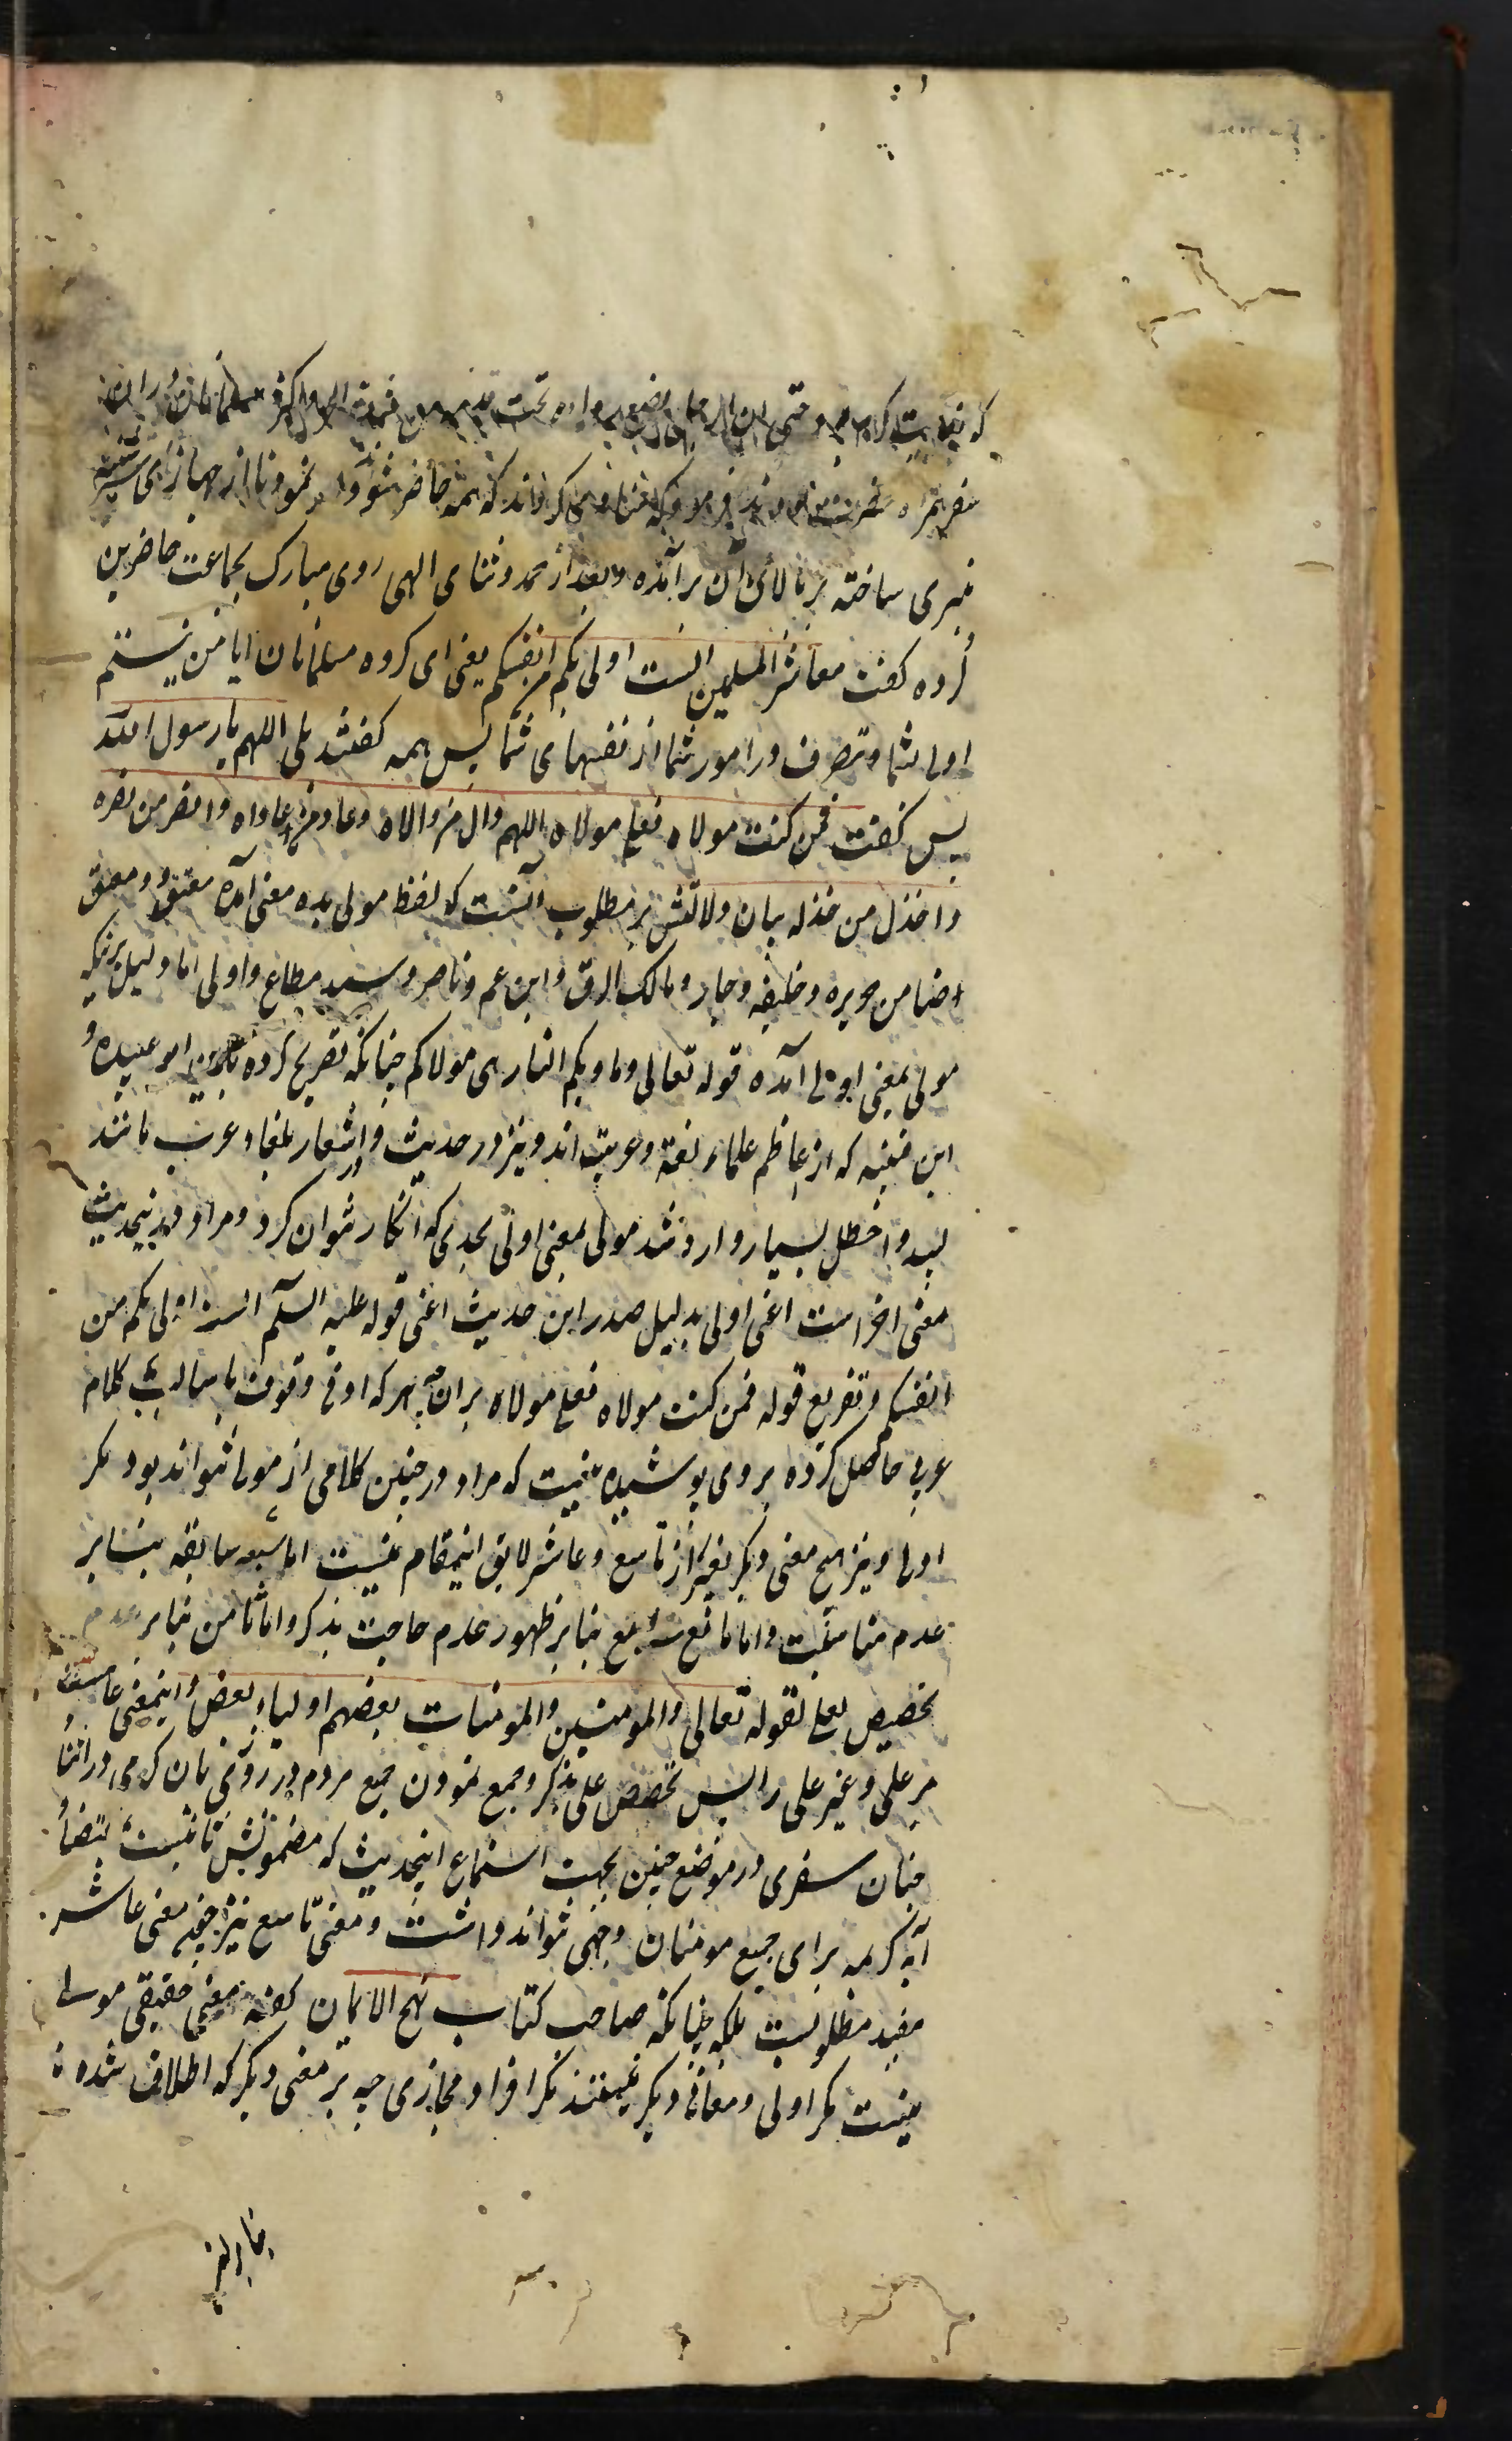 که بغایت گرم بود حتی ان الرجل یضع رداءه تحت قدمیه من شدة الحر و اکثر مسلمانان را در آن
سفر همراه حضرت بودند فرمود که منادی کردند که همه حاضر شوند و نمودند تا از جهاز های شتر
منبری ساخته بر بالای آن برآمده و بعد از حمد و ثنای الهی روی مبارک بجماعت حاضرین
کرده گفت معاشر المسلمین الست اولی بکم من انفسکم یعنی ای گروه مسلمانان ایا من نیستم
اولی بشما و تصرف در امور شما از نفسهای شما پس همه گفتند بلی اللهم یا رسول الله
پس گفت فمن کنت مولاه فعلی مولاه اللهم وال من والاه و عاد من عاداه و انصر من نصره
و اخذل من خذله بیان دلالتش بر مطلوب آنست که لفظ مولی بده معنی آمده معتِق و معتَق
و ضامن جریره و حلیف و جار و مالک الرق و ابن عم و ناصر و سید مطاع و اولی اما دلیل بر آنکه
مولی بمعنی اولی آمده قوله تعالی و ماویکم النار هی مولاکم چنانکه تصریح کرده باین ابو عبیده و
ابن قتیبه که از اعاظم علماء لغة و عربیت اند و نیز در حدیث و در اشعار بلغاء عرب مانند
لبید و اخطل بسیار وارد شده مولی بمعنی اولی بحدی که انکار نتوان کرد و مراد در اینحدیث
معنی اخر است اعنی اولی بدلیل صدر این حدیث اعنی قوله علیه السلام الست اولی بکم من
انفسکم و تفریع قوله فمن کنت مولاه فعلی مولاه بر ان چه هر که ادنی وقوف باسالیب کلام
عربی حاصل کرده بر وی پوشیده نیست که مراد در چنین کلامی از مولی نتواند بود مگر
اولی و نیز هیچ معنی دیگر بغیر از تاسع و عاشر لایق اینمقام نیست اما سبعه سابقه بنا بر
عدم مناسبت و اما بنا بر ظهور عدم حاجت بذکر و اما ثامن بنا بر عدم
تخصیص بعلی لقوله تعالی و المومنین و المومنات بعضهم اولیاء بعض و اینمعنی عامست
مر علی و غیر علی را پس تخصیص علی بذکر و جمع نمودن جمیع مردم در روزی بان گرمی در اثناء
چنان سفری در موضع چنین بجهت استماع اینحدیث که مضمونش ثابتست بمقتضاء
آیه کریمه برای جمیع مومنان وجهی نتواند داشت و معنی تاسع نیز چون معنی عاشر
مفید مطلوبست بلکه چنانکه صاحب کتاب نهج الایمان گفته معنی حقیقی مولی
نیست مگر اولی و معانی دیگر نیستند مگر افراد مجازی چه بر معنی دیگر که اطلاق شده
بنابر این